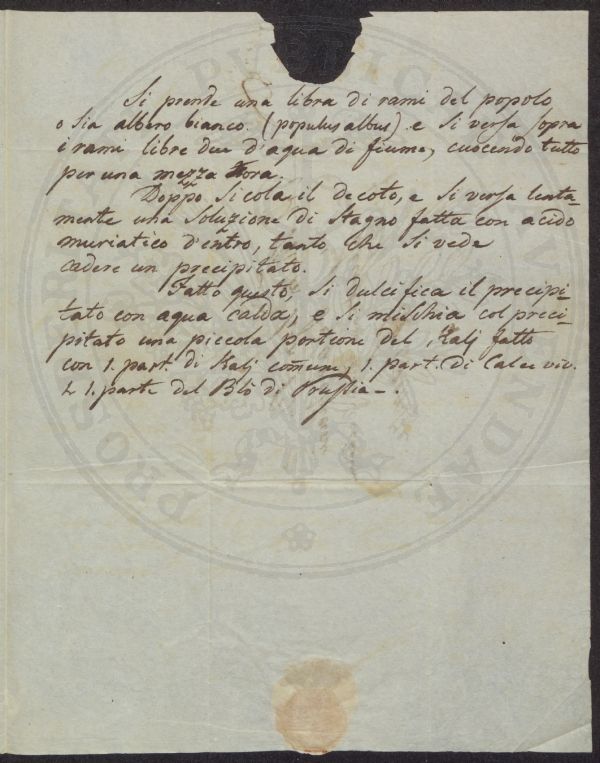 Si prende una libra di rami del popolo
o sia albero bianco. (populus albus) e si versa sopra
i rami libre due d'aqua di fiume, cuocendo tutto
per una mezza hora.
Doppo si cola il decoto, e si versa lenta-
mente una soluzione di stagno fatta con acido
muriatico dentro, tanto che si vede
cadere un precipitato.
Fatto questo, si dulcifica il precipi-
tato con aqua calda, e si mischia col preci-
pitato una piccola portione del Kalj fatto
con 1. part. di Kalj comune, 1. part. di Calce viv.
1. parte del Blò di Prussia.
PUBLIC
PROSPERITATI